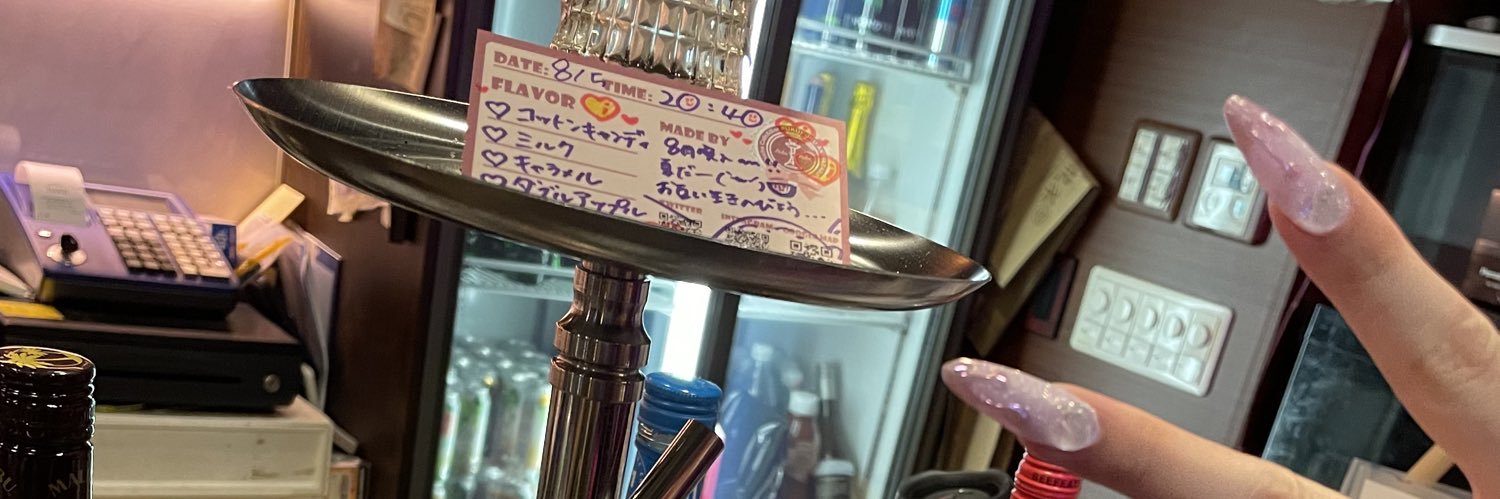 DATE: 8/5 TIME: 20:40
FLAVOR
コットンキャンディ
ミルク
キャラメル
ダブルアップル
MADE BY
8月突入〜!!
夏だー
お互い生きのびよう...
TWITTER
INSTAGRAM
BEEFEAT